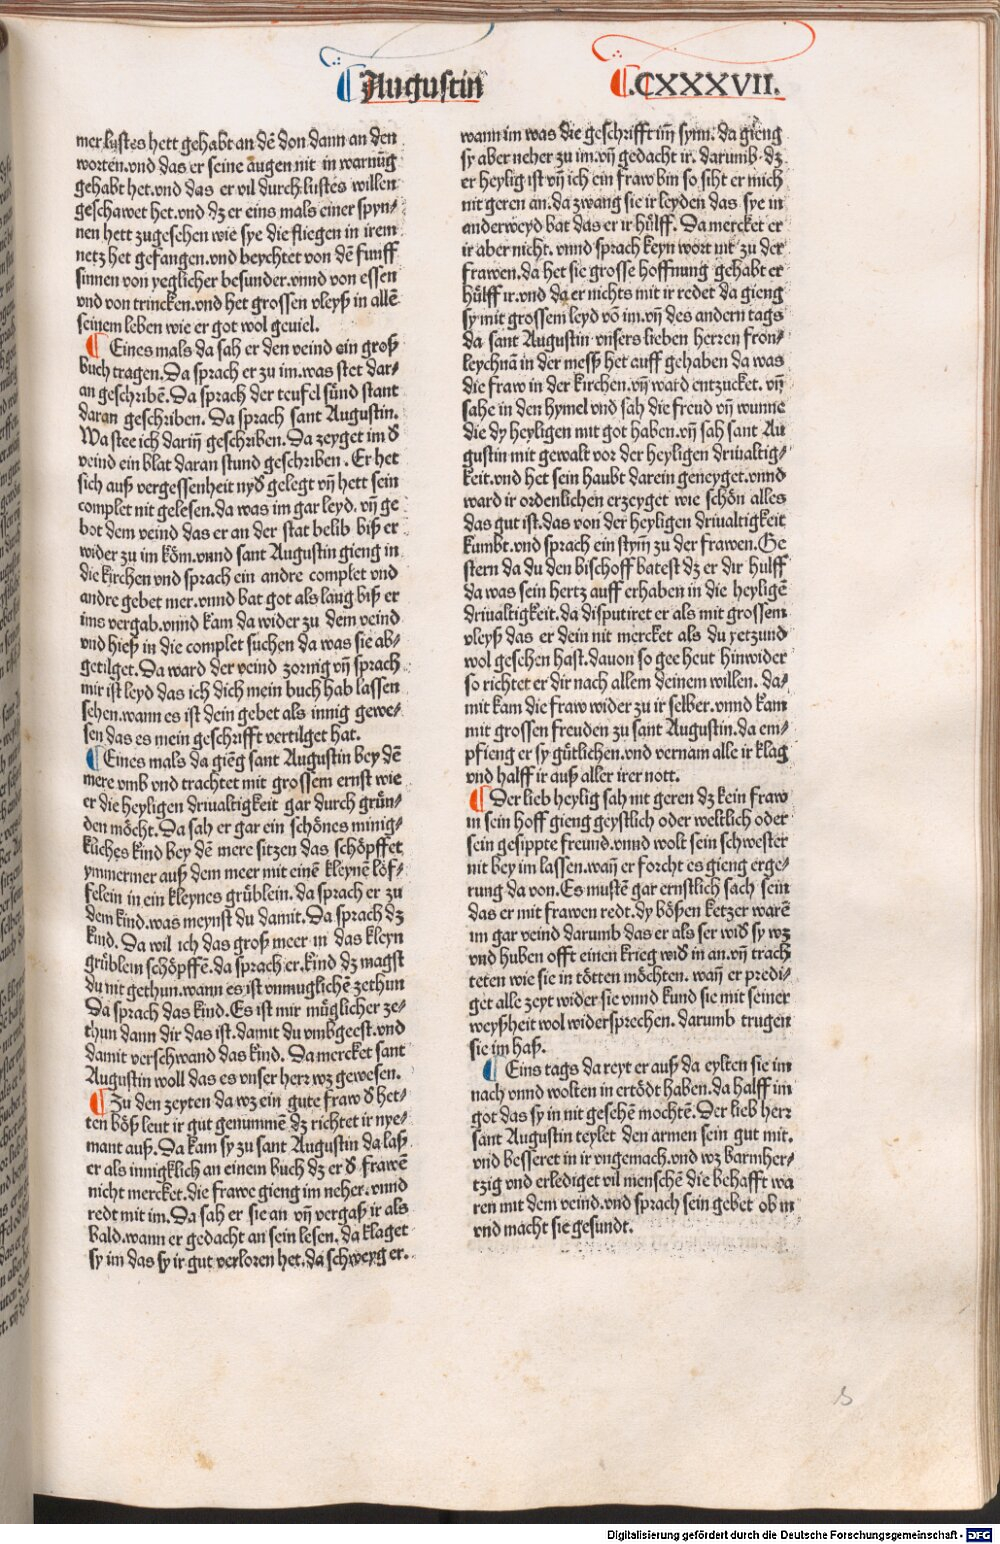 Augustin
.CXXXVII.
mer lustes hett gehabt an dē don dann an den
worten.vnd das er seine augen nit in warnūg
gehabt het.vnd das er vil durch lustes willen
geschawet het.vnd dz er eins mals einer spyn⸗
nen hett zugesehen wie sye die fliegen in irem
netz het gefangen.vnd beychtet von dē funff
sinnen von yeglicher besunder.vnnd von essen
vnd von trincken.vnd het grossen vleyß in allē
seinem leben wie er got wol geuiel.
Eines mals da sah er den veind ein groß
buch tragen.Da sprach er zu im.was stet dar⸗
an geschribē.Da sprach der teufel sünd stant
daran geschriben. Da sprach sant Augustin.
Wa stee ich dariñ geschriben. Da zeyget im d̕
veind ein blat daran stund geschriben. Er het
sich auß vergessenheit nyd̕ gelegt vñ hett sein
complet nit gelesen.da was im gar leyd. vñ ge
bot dem veind das er an der stat belib biß er
wider zu im köm.vnnd sant Augustin gieng in
die kirchen vnd sprach ein andre complet vnd
andre gebet mer.vnnd bat got als lang biß er
ims vergab.vnnd kam da wider zu dem veind
vnd hieß in die complet suchen da was sie ab⸗
getilget.Da ward der veind zornig vñ sprach
mir ist leyd das ich dich mein buch hab lassen
sehen.wann es ist dein gebet als innig gewe⸗
sen das es mein geschrifft vertilget hat.
Eines mals da giēg sant Augustin bey dē
mere vmb vnd trachtet mit grossem ernst wie
er die heyligen driualtigkeit gar durch grün⸗
den möcht.Da sah er gar ein schönes minig⸗
kliches kind bey dē mere sitzen das schöpffet
ymmermer auß dem meer mit einē kleynē löf⸗
felein in ein kleynes grüblein. da sprach er zu
dem kind.was meynst du damit. Da sprach dz
kind. Da wil ich das groß meer in das kleyn
grüblem schöpffē.da sprach er.kind dz magst
du nit gethun.wann es ist vnmuglichē zethun
Da sprach das kind.Es ist mir müglicher ze⸗
thun dann dir das ist.damit du vmbgeest.vnd
damit verschwand das kind. Da mercket sant
Augustin woll das es vnser herr wz gewesen.
Zu den zeyten da wz ein gute fraw d̕ het⸗
ten böß leut ir gut genummē dz richtet ir nye⸗
mant auß.Da kam sy zu sant Augustin da laß
er als innigklich an einem buch dz er d̕ frawē
nicht mercket.die frawe gieng im neher.vnnd
redt mit im.Da sah er sie an vñ vergaß ir als
bald.wann er gedacht an sein lesen. da klaget
sy im das sy ir gut verloren het.da schweyg er.
wann im was die geschrifft im̄ synn. da gieng
sy aber neher zu im.vñ gedacht ir. darumb dz
er heylig ist vñ ich ein fraw bin so siht er mich
nit geren an.da zwang sie ir leyden das sye in
anderweyd bat das er ir hülff. Da mercket er
ir aber nicht. vnnd sprach keyn wort nit zu der
frawen.da het sie grosse hoffnung gehabt er
hülff ir.vnd da er nichts mit ir redet da gieng
sy mit grossem leyd vō im.vñ des andern tags
da sant Augustin vnsers lieben herren fron⸗
leychnā in der mess het auff gehaben da was
die fraw in der kirchen.vñ ward entzucket. vñ
sahe in den hymel vnd sah die freud vñ wunne
die dy heyligen mit got haben.vñ sah sant Au
gustin mit gewalt vor der heyligen driualtig⸗
keit.vnd het sein haubt darein geneyget.vnnd
ward ir ordenlichen erzeyget wie schön alles
das gut ist.das von der heyligen driualtigkeit
kumbt.vnd sprach ein stym̄ zu der frawen.Ge
stern da du den bischoff batest dz er dir hulff
da was sein hertz auff erhaben in die heyligē
driualtigkeit.da disputiret er als mit grossem
vleyß das er dein nit mercket als du yetzund
wol gesehen hast.dauon so gee heut hinwider
so richtet er dir nach allem deinem willen. da⸗
mit kam die fraw wider zu ir selber.vnnd kam
mit grossen freuden zu sant Augustin.da em⸗
pfieng er sy gütlichen.vnd vernam alle ir klag
vnd halff ir auß aller irer nott.
Der lieb heylig sah nit geren dz kein fraw
in sein hoff gieng geystlich oder weltlich oder
sein gesippte freund.vnnd wolt sein schwester
nit bey im lassen.wañ er forcht es gieng erge⸗
rung da von.Es mustē gar ernstlich sach sein
das er mit frawen redt.dy bößen ketzer warē
im gar veind darumb das er als ser wid̕ sy wz
vnd huben offt einen krieg wid̕ in an.vñ trach
teten wie sie in tötten möchten. wañ er predi⸗
get alle zeyt wider sie vnnd kund sie mit seiner
weyßheit wol widersprechen. darumb trugen
sie im haß.
Eins tags da reyt er auß da eylten sie im
nach vnnd wolten in ertödt haben.da halff im
got das sy in nit gesehē mochtē.Der lieb herr
sant Augustin teylet den armen sein gut mit.
vnd besseret in ir vngemach.vnd wz barmher⸗
tzig vnd erlediget vil menschē die behafft wa
ren mit dem veind.vnd sprach sein gebet ob in
vnd macht sie gesundt.
Digitalisierung gefördert durch die Deutsche Forschungsgemeinschaft - DFG